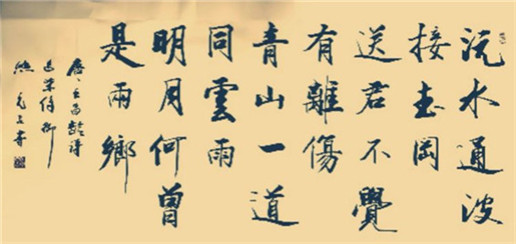 沅水通波
接武岡
送君不覺
有離傷
青山一道
同雲雨
明月何曾
是兩鄉
唐王昌齡詩
送柴侍御